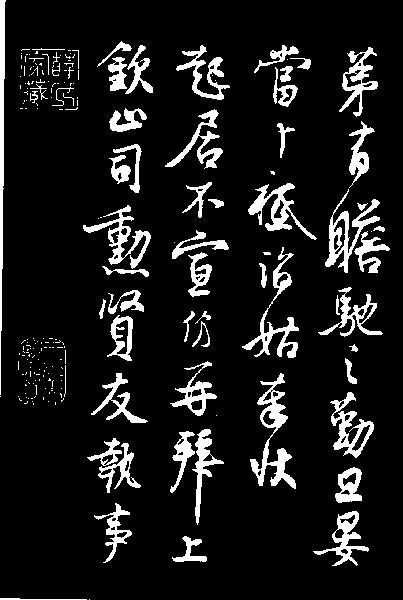 弟有瞻馳之勤旦晏
當卜祗詣姑奉狀
起居不宣再拜上
欽止司勳賢友執事
薛氏家藏